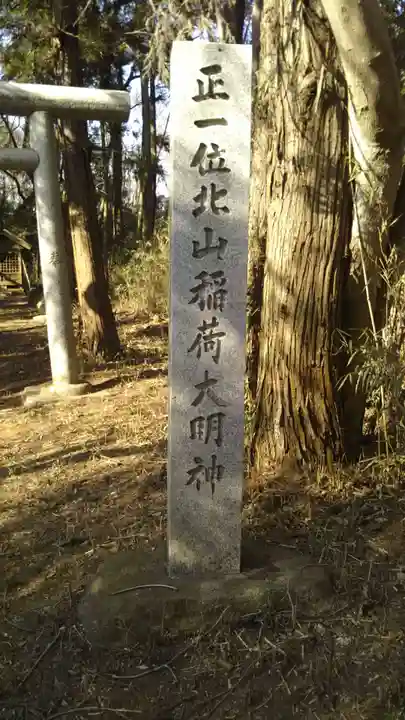 正一位北山稲荷大明神